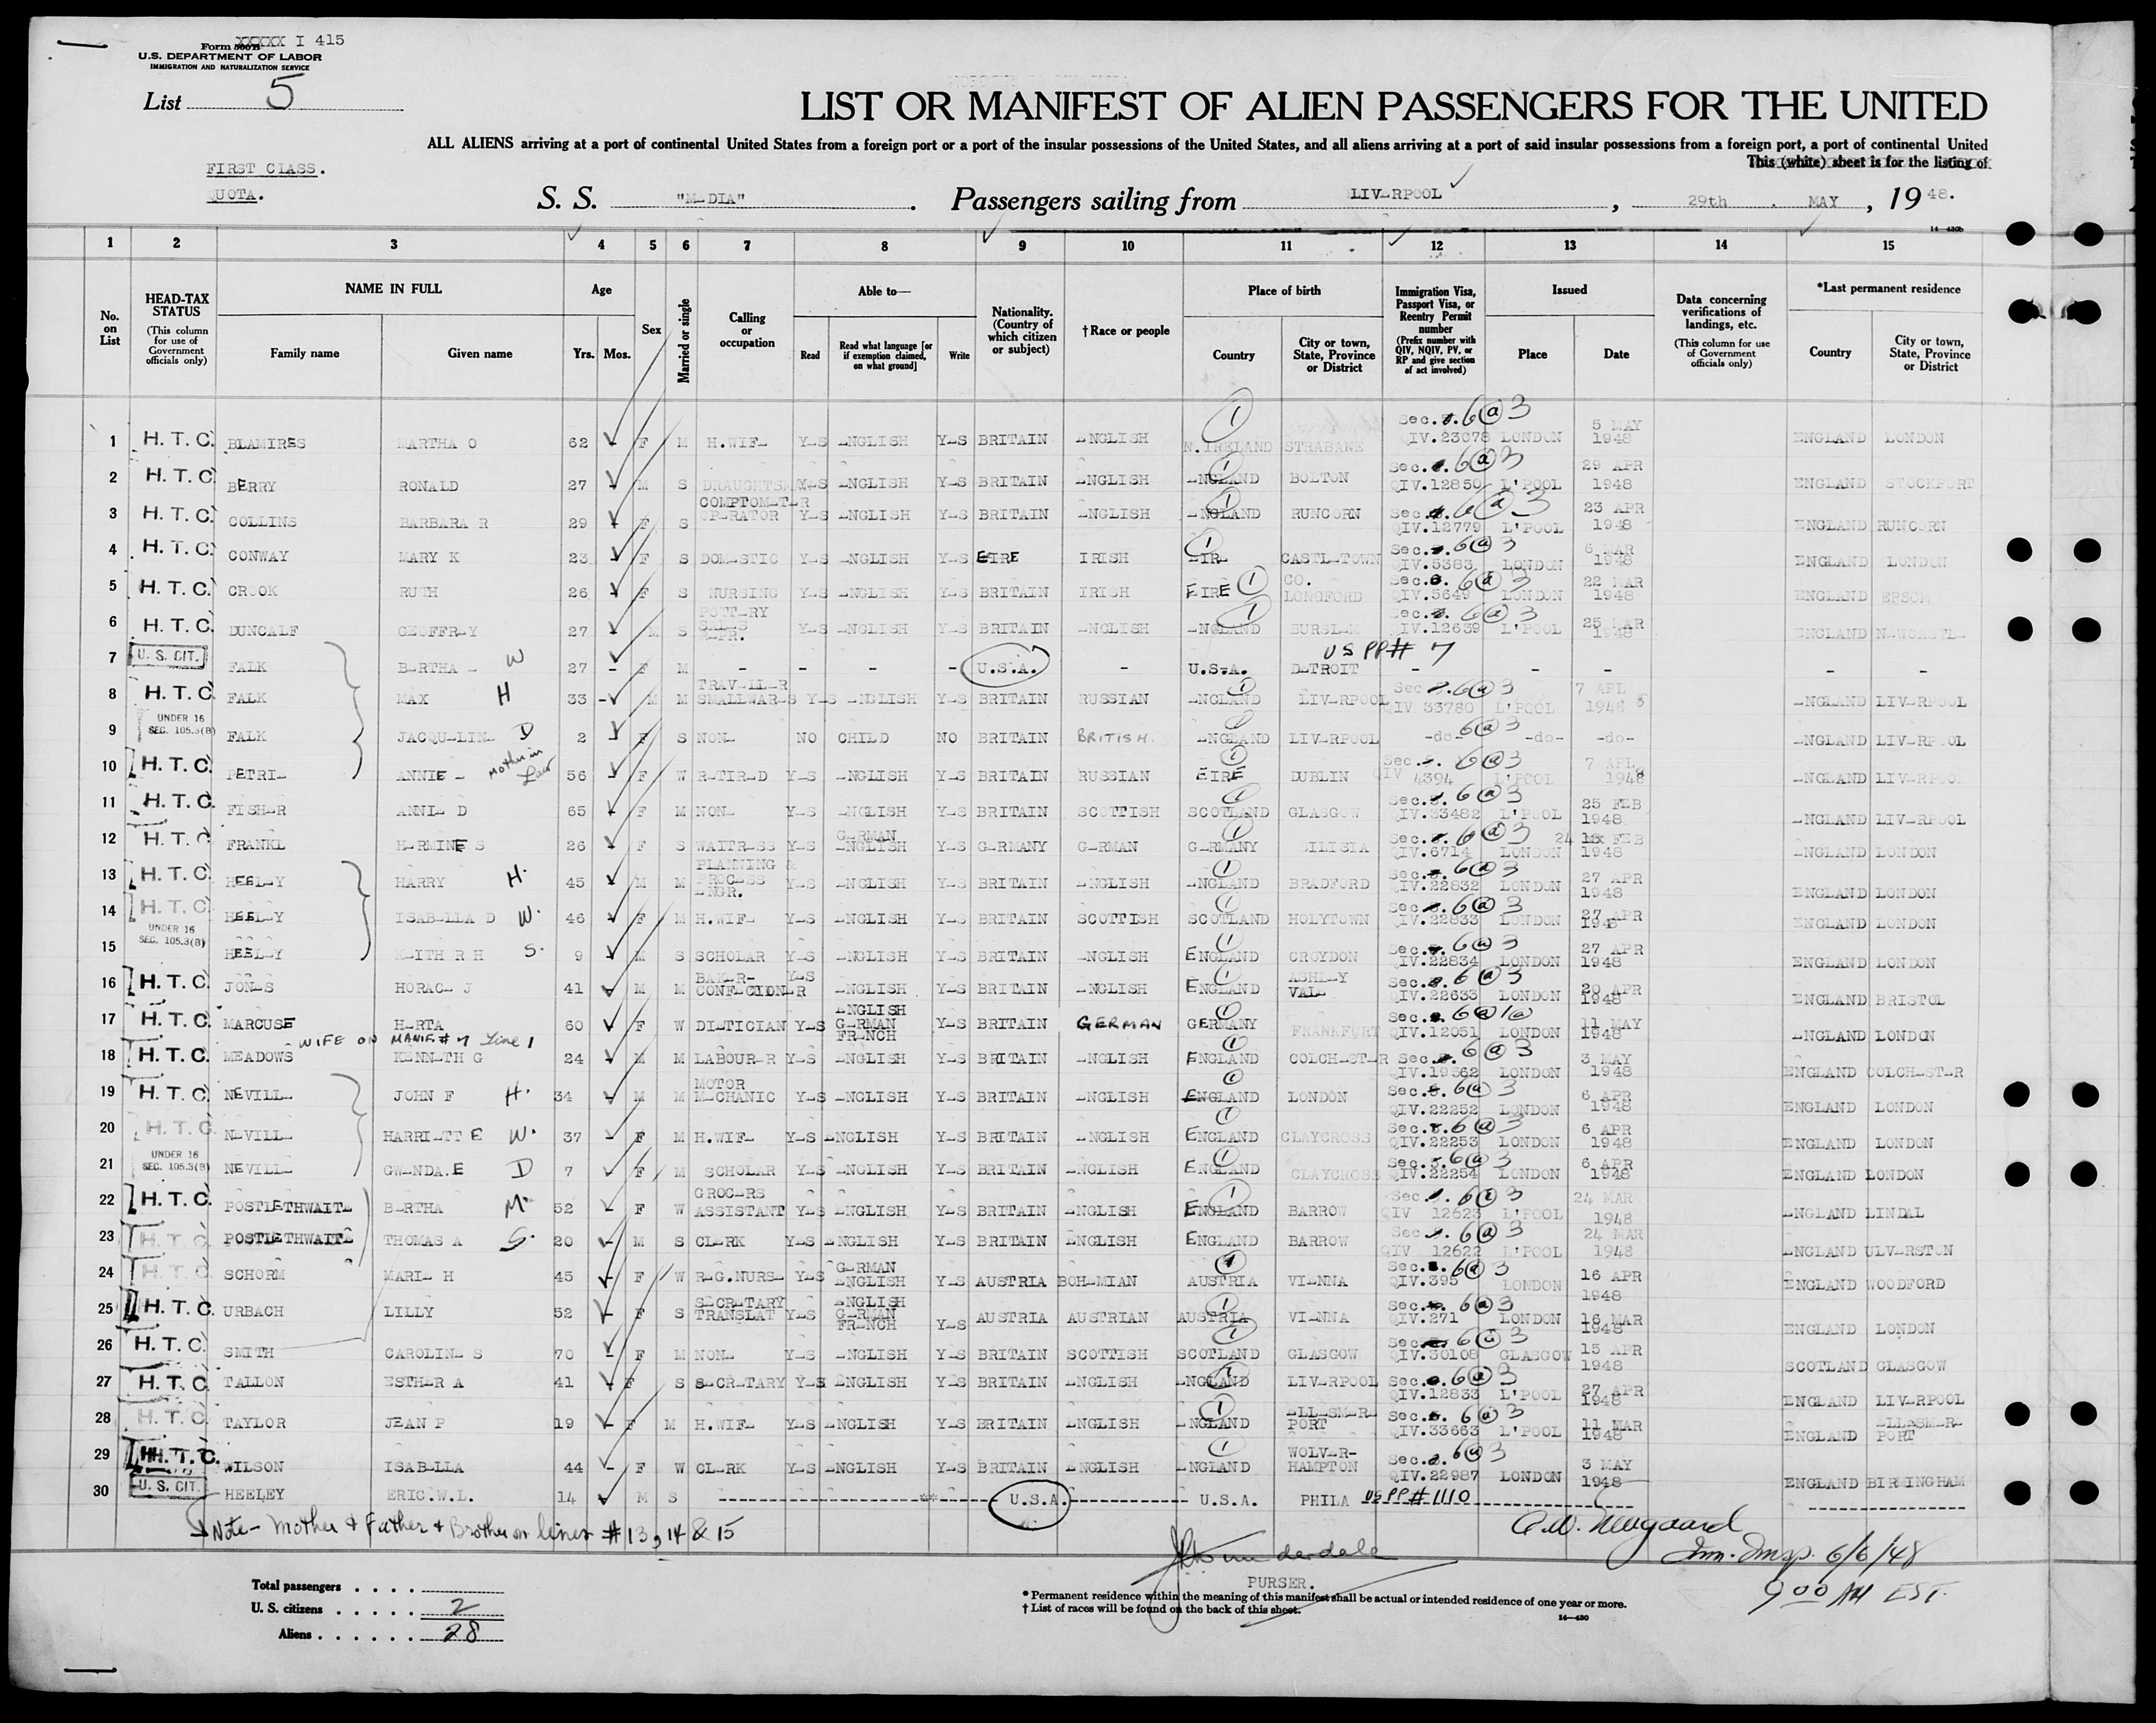 Form 500B XXXXX I 415
U.S. DEPARTMENT OF LABOR
IMMIGRATION AND NATURALIZATION SERVICE
List 5
LIST OR MANIFEST OF ALIEN PASSENGERS FOR THE UNITED
ALL ALIENS arriving at a port of continental United States from a foreign port or a port of the insular possessions of the United States, and all aliens arriving at a port of said insular possessions from a foreign port, a port of continental United
This (white) sheet is for the listing of
FIRST CLASS.
QUOTA.
S. S. "M-DIA". Passengers sailing from LIV-RPOOL, 29th. MAY, 19 48.
14-430b
1 2 3 4 5 6 7 8 9 10 11 12 13 14 15
No. on List
HEAD-TAX STATUS (This column for use of Government officials only)
NAME IN FULL Family name Given name
Age Yrs. Mos.
Sex
Married or single
Calling or occupation
Able to— Read Read what language [or if exemption claimed, on what ground] Write
Nationality. (Country of which citizen or subject)
†Race or people
Place of birth Country City or town, State, Province or District
Immigration Visa, Passport Visa, or Reentry Permit number (Prefix number with QIV, NQIV, PV, or RP and give section of act involved)
Issued Place Date
Data concerning verifications of landings, etc. (This column for use of Government officials only)
*Last permanent residence Country City or town, State, Province or District
1 H. T. C. BLAMIRES MARTHA O 62 - F M H.WIF- Y-S -NGLISH Y-S BRITAIN -NGLISH N.IRELAND STRABANE 1 Sec. 6(a)3 QIV.23078 LONDON 5 MAY 1948 ENGLAND LONDON
2 H. T. C. BERRY RONALD 27 - M S DRAUGHTSM Y-S -NGLISH Y-S BRITAIN -NGLISH -NGLAND BOLTON 1 Sec. 6(a)3 QIV.12850 L'POOL 29 APR 1948 ENGLAND STOCKPORT
3 H. T. C. COLLINS BARBARA R 29 - F S COMPTOM-T-R OP-RATOR Y-S -NGLISH Y-S BRITAIN -NGLISH -NGLAND RUNCORN 1 Sec. 6(a)3 QIV.12779 L'POOL 23 APR 1948 ENGLAND RUNCORN
4 H. T. C. CONWAY MARY K 23 - F S DOM-STIC Y-S -NGLISH Y-S EIRE IRISH -IR- CASTL-TOWN 1 Sec. 6(a)3 QIV.5383 LONDON 6 MAR 1948 ENGLAND LONDON
5 H. T. C. CROOK RUTH 26 - F S NURSING Y-S -NGLISH Y-S BRITAIN IRISH EIRE 1 CO. LONGFORD Sec. 6(a)3 QIV.5649 LONDON 22 MAR 1948 ENGLAND EPSOM
6 H. T. C. DUNCALF GEOFFR-Y 27 - M S POTT-RY SAL-S R-PR. Y-S -NGLISH Y-S BRITAIN -NGLISH -NGLAND BURSL-M 1 Sec. 6(a)3 QIV.12639 L'POOL 25 MAR 1948 ENGLAND N-WCASTL-
7 U. S. CIT. FALK B-RTHA - W 27 - F M - - - - U.S.A. - U.S.A. D-TROIT US PP# 7 - - - - -
8 H. T. C. FALK MAX H 33 - M M TRAV-LL-R SMALLWAR-S Y-S -NGLISH Y-S BRITAIN RUSSIAN -NGLAND LIV-RPOOL 1 Sec. 6(a)3 QIV 33780 L'POOL 7 APL 1948 -NGLAND LIV-RPOOL
9 UNDER 16 SEC. 105.3(B) FALK JACQU-LIN- D 2 - F S NON- NO CHILD NO BRITAIN BRITISH -NGLAND LIV-RPOOL -do- 6(a)3 -do- -do- -NGLAND LIV-RPOOL
10 H. T. C. PETRI- ANNIE - Mother in Law 56 - F W R-TIR-D Y-S -NGLISH Y-S BRITAIN RUSSIAN EIRE DUBLIN 1 Sec. 6(a)3 QIV 4394 L'POOL 7 APL 1948 -NGLAND LIV-RPOOL
11 H. T. C. FISH-R ANNI- D 65 - F M NON- Y-S -NGLISH Y-S BRITAIN SCOTTISH SCOTLAND GLASGOW 1 Sec. 6(a)3 QIV.33482 L'POOL 25 FEB 1948 -NGLAND LIV-RPOOL
12 H. T. C. FRANKL H-RMINE S 26 - F S WAITR-SS Y-S G-RMAN -NGLISH Y-S G-RMANY G-RMAN G-RMANY SILISIA 1 Sec. 6(a)3 QIV.6714 LONDON 24 FEB 1948 -NGLAND LONDON
13 H. T. C. HEEL-Y HARRY H. 45 - M M PLANNING & PROC-SS -NGR. Y-S -NGLISH Y-S BRITAIN -NGLISH -NGLAND BRADFORD 1 Sec. 6(a)3 QIV.22832 LONDON 27 APR 1948 ENGLAND LONDON
14 H. T. C. HEEL-Y ISAB-LLA D W. 46 - F M H.WIF- Y-S -NGLISH Y-S BRITAIN SCOTTISH SCOTLAND HOLYTOWN 1 Sec. 6(a)3 QIV.22833 LONDON 27 APR 1948 ENGLAND LONDON
15 UNDER 16 SEC. 105.3(B) HEEL-Y K-ITH R H S. 9 - M S SCHOLAR Y-S -NGLISH Y-S BRITAIN -NGLISH ENGLAND CROYDON 1 Sec. 6(a)3 QIV.22834 LONDON 27 APR 1948 ENGLAND LONDON
16 H. T. C. JON-S HORAC- J 41 - M M BAK-R- CONF-CTION-R Y-S -NGLISH Y-S BRITAIN -NGLISH ENGLAND ASHL-Y VAL- 1 Sec. 6(a)3 QIV.22633 LONDON 20 APR 1948 ENGLAND BRISTOL
17 H. T. C. MARCUSE H-RTA 60 - F W DI-TICIAN Y-S -NGLISH G-RMAN FR-NCH Y-S BRITAIN GERMAN GERMANY FRANKFURT 1 Sec. 6(a)1(a) QIV.12051 LONDON 11 MAY 1948 -NGLAND LONDON
WIFE ON MANIF# 7 Line 1
18 H. T. C. MEADOWS K-NN-TH G 24 - M M LABOUR-R Y-S -NGLISH Y-S BRITAIN -NGLISH ENGLAND COLCH-ST-R 1 Sec. 6(a)3 QIV.19562 LONDON 3 MAY 1948 ENGLAND COLCH-ST-R
19 H. T. C. NEVILL- JOHN F H. 34 - M M MOTOR M-CHANIC Y-S -NGLISH Y-S BRITAIN -NGLISH ENGLAND LONDON 1 Sec. 6(a)3 QIV.22252 LONDON 6 APR 1948 ENGLAND LONDON
20 H. T. C. N-VILL- HARRI-TT E W. 37 - F M H.WIF- Y-S -NGLISH Y-S BRITAIN -NGLISH ENGLAND CLAYCROSS 1 Sec. 6(a)3 QIV.22253 LONDON 6 APR 1948 ENGLAND LONDON
21 UNDER 16 SEC. 105.3(B) NEVILL- GW-NDA.E D 7 - F M SCHOLAR Y-S -NGLISH Y-S BRITAIN -NGLISH ENGLAND CLAYCROSS 1 Sec. 6(a)3 QIV.22254 LONDON 6 APR 1948 ENGLAND LONDON
22 H. T. C. POSTLETHWAIT- B-RTHA M. 52 - F W GROC-RS ASSISTANT Y-S -NGLISH Y-S BRITAIN -NGLISH ENGLAND BARROW 1 Sec. 6(a)3 QIV 12623 L'POOL 24 MAR 1948 -NGLAND LINDAL
23 H. T. C. POSTLETHWAITE THOMAS A S. 20 - M S CL-RK Y-S -NGLISH Y-S BRITAIN ENGLISH ENGLAND BARROW Sec. 6(a)3 QIV 12622 L'POOL 24 MAR 1948 -NGLAND ULV-RSTON
24 H. T. C. SCHORM MARI- H 45 - F W R-G.NURS- Y-S G-RMAN ENGLISH Y-S AUSTRIA BOH-MIAN AUSTRIA VI-NNA 1 Sec. 6(a)3 QIV.395 LONDON 16 APR 1948 ENGLAND WOODFORD
25 H. T. C. URBACH LILLY 52 - F S S-CR-TARY TRANSLAT Y-S -NGLISH G-RMAN FR-NCH Y-S AUSTRIA AUSTRIAN AUSTRIA VI-NNA 1 Sec. 6(a)3 QIV.271 LONDON 16 MAR 1948 ENGLAND LONDON
26 H. T. C. SMITH CAROLIN- S 70 - F M NON- Y-S -NGLISH Y-S BRITAIN SCOTTISH SCOTLAND GLASGOW 1 Sec. 6(a)3 QIV.30108 GLASGOW 15 APR 1948 SCOTLAND GLASGOW
27 H. T. C. TALLON ESTH-R A 41 - F S S-CR-TARY Y-S ENGLISH Y-S BRITAIN -NGLISH -NGLAND LIV-RPOOL 1 Sec. 6(a)3 QIV.12833 L'POOL 27 APR 1948 ENGLAND LIV-RPOOL
28 H. T. C. TAYLOR JEAN P 19 - F M H.WIF- Y-S -NGLISH Y-S BRITAIN -NGLISH -NGLAND -LL-SM-R- PORT 1 Sec. 6(a)3 QIV.33663 L'POOL 11 MAR 1948 ENGLAND -LL-SM-R- PORT
29 H. T. C. WILSON ISAB-LLA 44 - F W CL-RK Y-S -NGLISH Y-S BRITAIN ENGLISH -NGLAND WOLV-R- HAMPTON 1 Sec. 6(a)3 QIV.22987 LONDON 3 MAY 1948 ENGLAND BIRMINGHAM
30 U. S. CIT. HEELEY ERIC.W.L. 14 M S U.S.A U.S.A. PHILA US PP# 1110
Note - Mother & Father & Brother on lines #13, 14 & 15
Imm. Insp. 6/6/48
9 00 AM EST.
PURSER.
Total passengers . . . .
U. S. citizens . . . . . 2
Aliens . . . . . . 28
* Permanent residence within the meaning of this manifest shall be actual or intended residence of one year or more.
† List of races will be found on the back of this sheet.
14-430